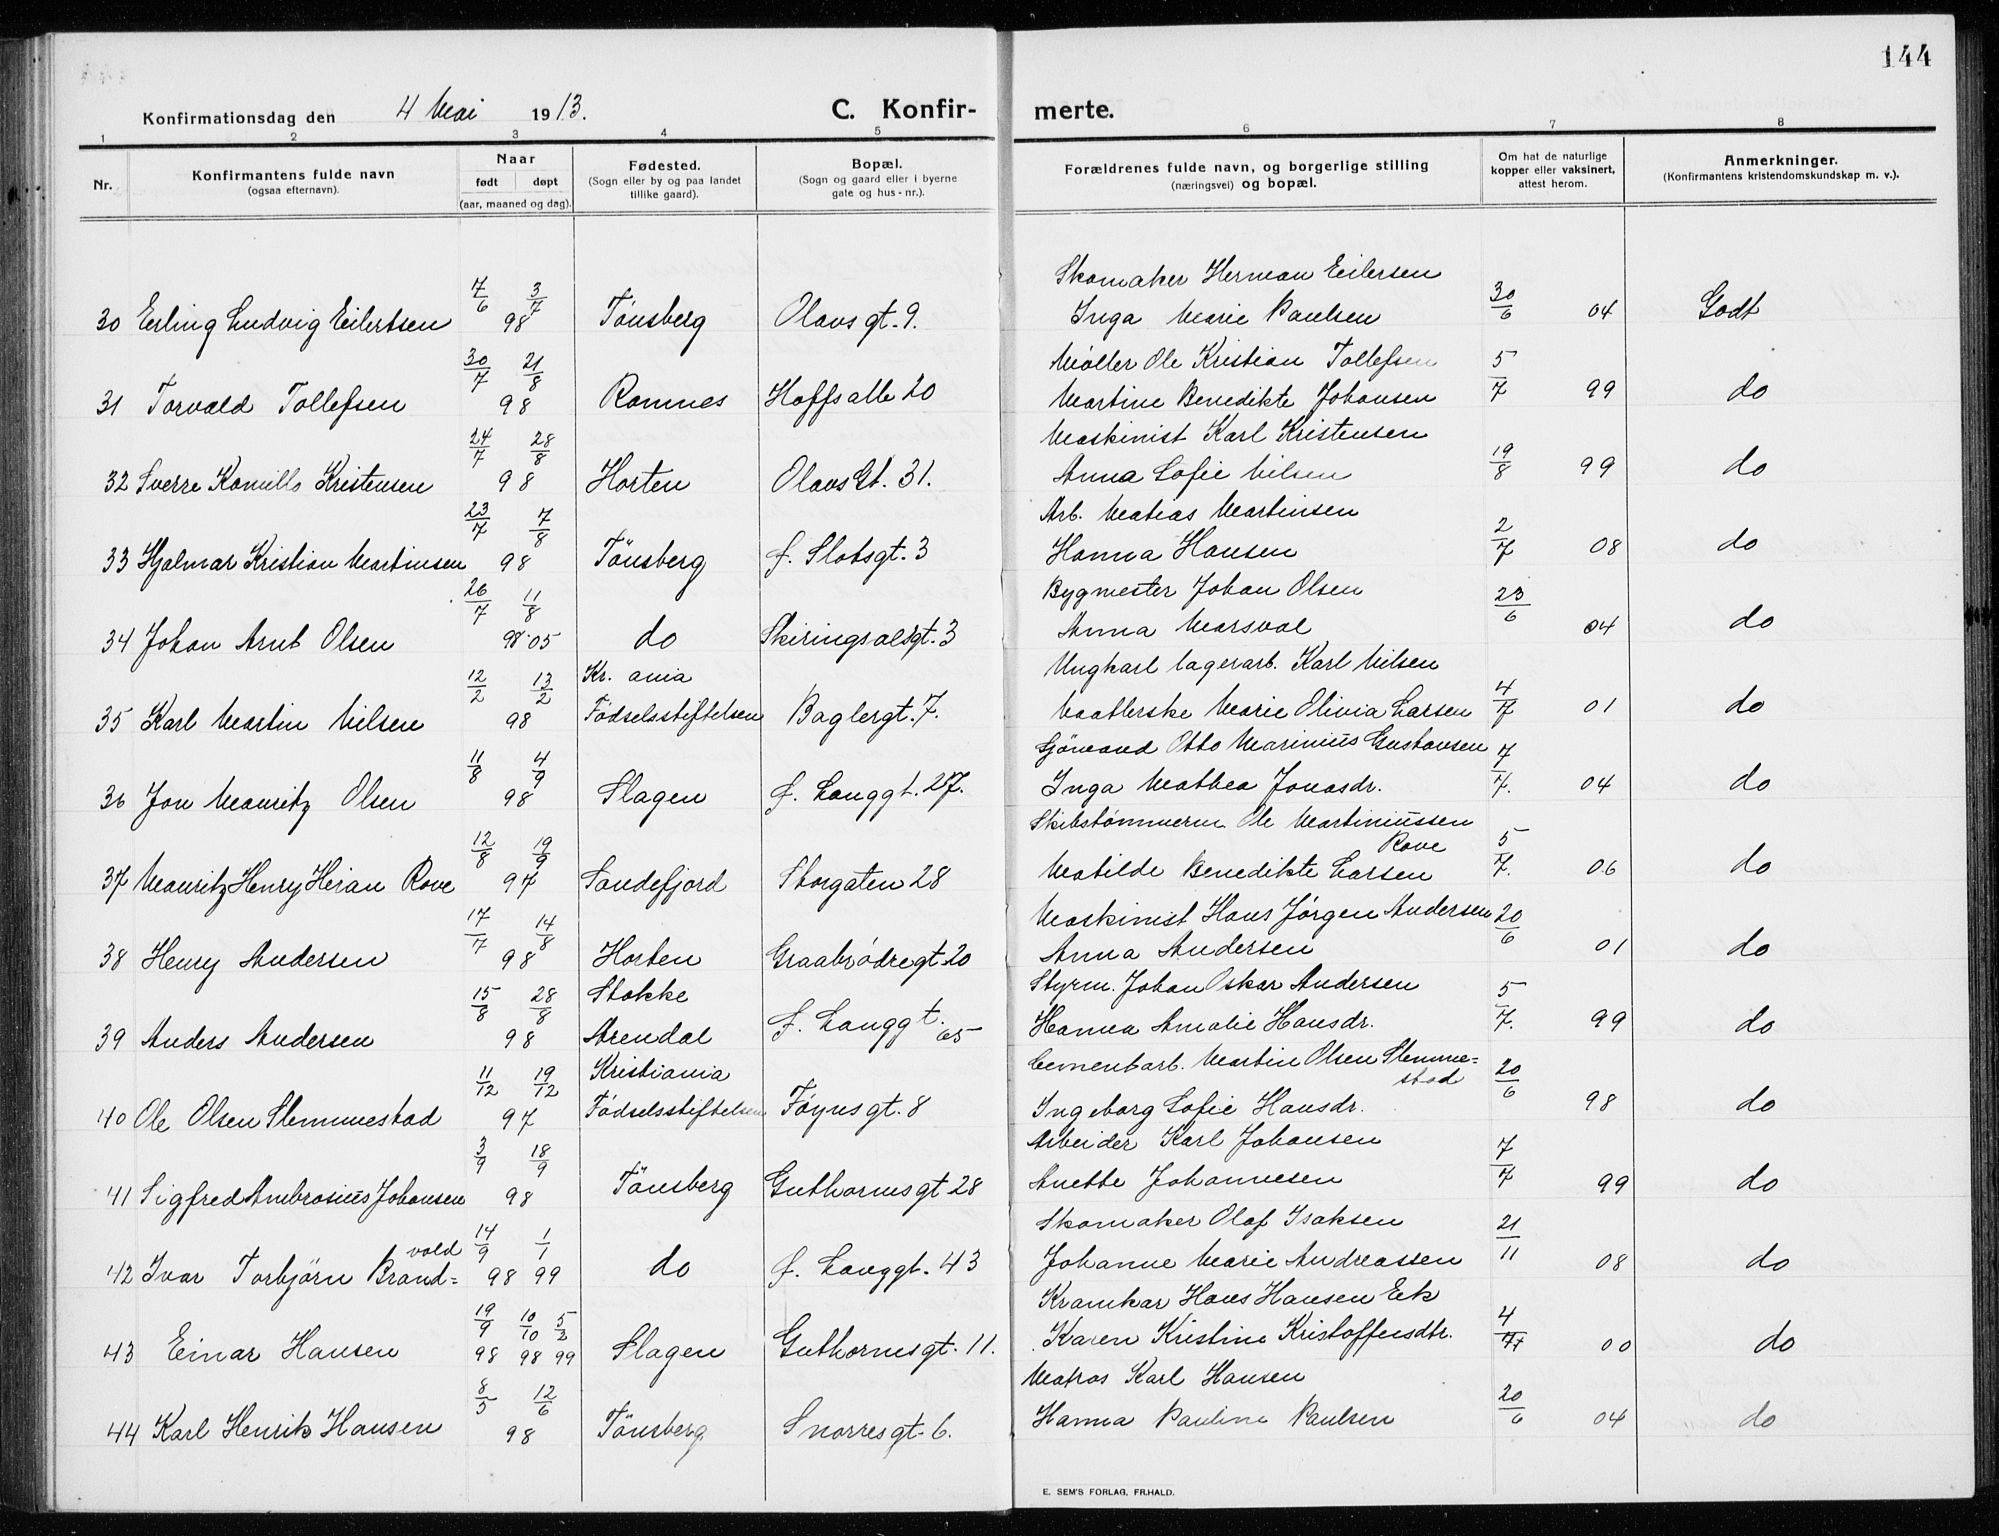 144
Konfirmationsdag den 4 Mai 1913.
C. Konfir-
merte.
1 2 3 4 5 6 7 8
Nr.
Konfirmantens fulde navn
(ogsaa efternavn).
Naar
født døpt
(aar, maaned og dag).
Fødested.
(Sogn eller by og paa landet
tillike gaard).
Bopæl.
(Sogn og gaard eller i byerne
gate og hus-nr.).
Forældrenes fulde navn, og borgerlige stilling
(næringsvei) og bopæl.
Om hat de naturlige
kopper eller vaksinert,
attest herom.
Anmerkninger.
(Konfirmantens kristendomskundskap m. v.).
7/6 3/7 Skomaker Herman Eilersen
30 Erling Ludvig Eilertsen 98 Tönsberg Olavs gt. 9. Inga Marie Paulsen 30/6 04 Godt
30/7 21/8 Møller Ole Kristian Tollefsen
31 Torvald Tollefsen 98 Ramnes Hoffs alle 20 Martine Benedikte Johansen 5/7 99 do
24/7 28/8 Maskinist Karl Kristensen
32 Sverre Kamillo Kristensen 98 Horten Olavs Gt. 31. Anna Sofie Nilsen 19/8 99 do
23/7 7/8 Arb. Matias Martinsen
33 Hjalmar Kristian Martinsen 98 Tönsberg f. Slotsgt. 3 Hanna Hansen 2/7 08 do
26/7 11/8 Bygmester Johan Olsen
34 Johan Arnt Olsen 98 05 do Skiringsalsgt. 3 Anna Marsval 23/6 04 do
12/2 13/2 Kr. ania Ungkarl lagerarb. Karl Nilsen
35 Karl Martin Nilsen 98 Födselsstiftelsen Baglergt. 7. Vaatlerske Marie Olivia Larsen 4/7 01 do
11/8 4/9 Sjömand Otto Marinius Gustavsen
36 Jon Mauritz Olsen 98 Slagen f. Langgt. 27. Inga Mathea Jonasdr. 7/7. 04 do
12/8 19/9 Skibstømmerm. Ole Martiniussen
Rove
37 Mauritz Henry Heian Rove 97 Sandefjord Storgaten 28 Matilde Benedikte Larsen 5/7. 06 do
17/7 14/8 Maskinist Hans Jørgen Andersen
38 Henry Andersen 98 Horten Graabrødregt 20 Anna Andersen 20/6 01 do
15/8 28/8 Stokke Styrm. Johan Oskar Andersen
39 Anders Andersen 98 Arendal f. Langgt. 65 Hanna Amalie Hansdr. 5/7. 99 do
11/12 19/12 Kristiania Cementarb. Martin Olsen Slemme=
stad
40 Ole Olsen Slemmestad 97 Födselsstiftelsen Föyns gt. 8 Ingeborg Sofie Hansdr. 20/6 98 do
3/9 18/9 Arbeider Karl Johansen
41 Sigfred Ambrosius Johansen 98 Tönsberg Guthormsgt 28 Anette Johannesen 7/7 99 do
vold 14/9 1/1 Skomaker Olaf Isaksen
42 Ivar Torbjørn Brand= 98 99 do f. Langgt. 43 Johanne Marie Andreassen 21/11 08 do
19/9 10/10 5/3 Kramkar Hans Hansen Eek
43 Einar Hansen 98 98 99 Slagen Guthormsgt. 11. Karen Kristine Kristoffersdtr. 4/7 00 do
8/5 12/6 Matros Karl Hansen
44 Karl Henrik Hansen 98 Tönsberg Snorresgt. 6. Hanna Pauline Paulsen 20/6 04 do
E. SEM'S FORLAG, FR.HALD.